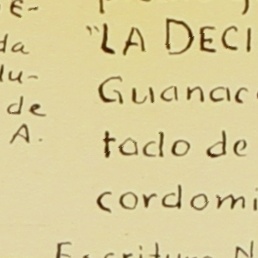 E-
da
du-
de
A.
"LA DECI
Guanac
tado de
cordomi
Escritura N